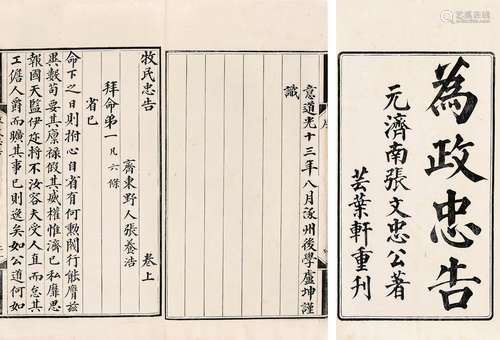 為政忠告
元濟南張文忠公著
芸葉軒重刊
序
意道光十三年八月涿州後學盧坤謹
識
牧民忠告
卷上
齊東野人張養浩
拜命第一凡六條
省己
命下之日則拊心自省有何勳閥行能膺兹
異數苟要其廩祿假其威權惟濟己私靡思
報國天監伊邇將不汝容夫受人直而怠其
工儋人爵而曠其事己則逸矣如公道何如